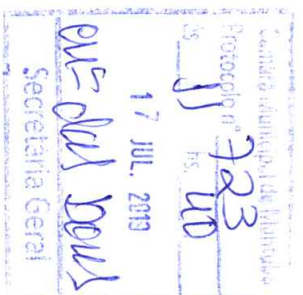 Câmara Municipal de
Protocolo nº 723
às 11 hs 40
17 JUL. 2019
Secretaria Geral